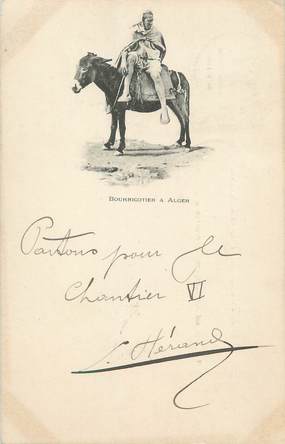 BOURRICOTIER A ALGER
Partons pour le
Chantier VI